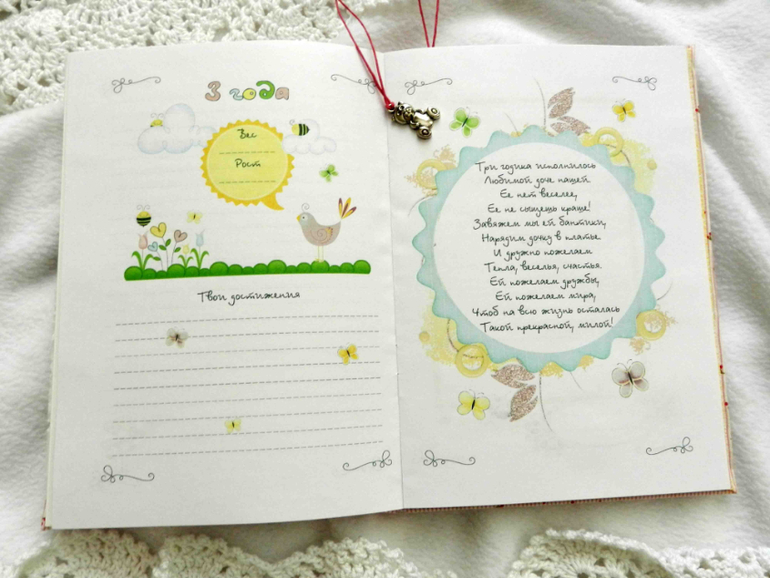 3 года
Вес
Рост
Твои достижения
Три годика исполнилось
Любимой доче нашей
Ее нет веселее,
Ее не сыщешь краше!
Завяжем мы ей бантики,
Нарядим дочку в платье
И дружно пожелаем
Тепла, веселья, счастья.
Ей пожелаем дружбы,
Ей пожелаем мира,
Чтоб на всю жизнь осталась
Такой прекрасной, милой!